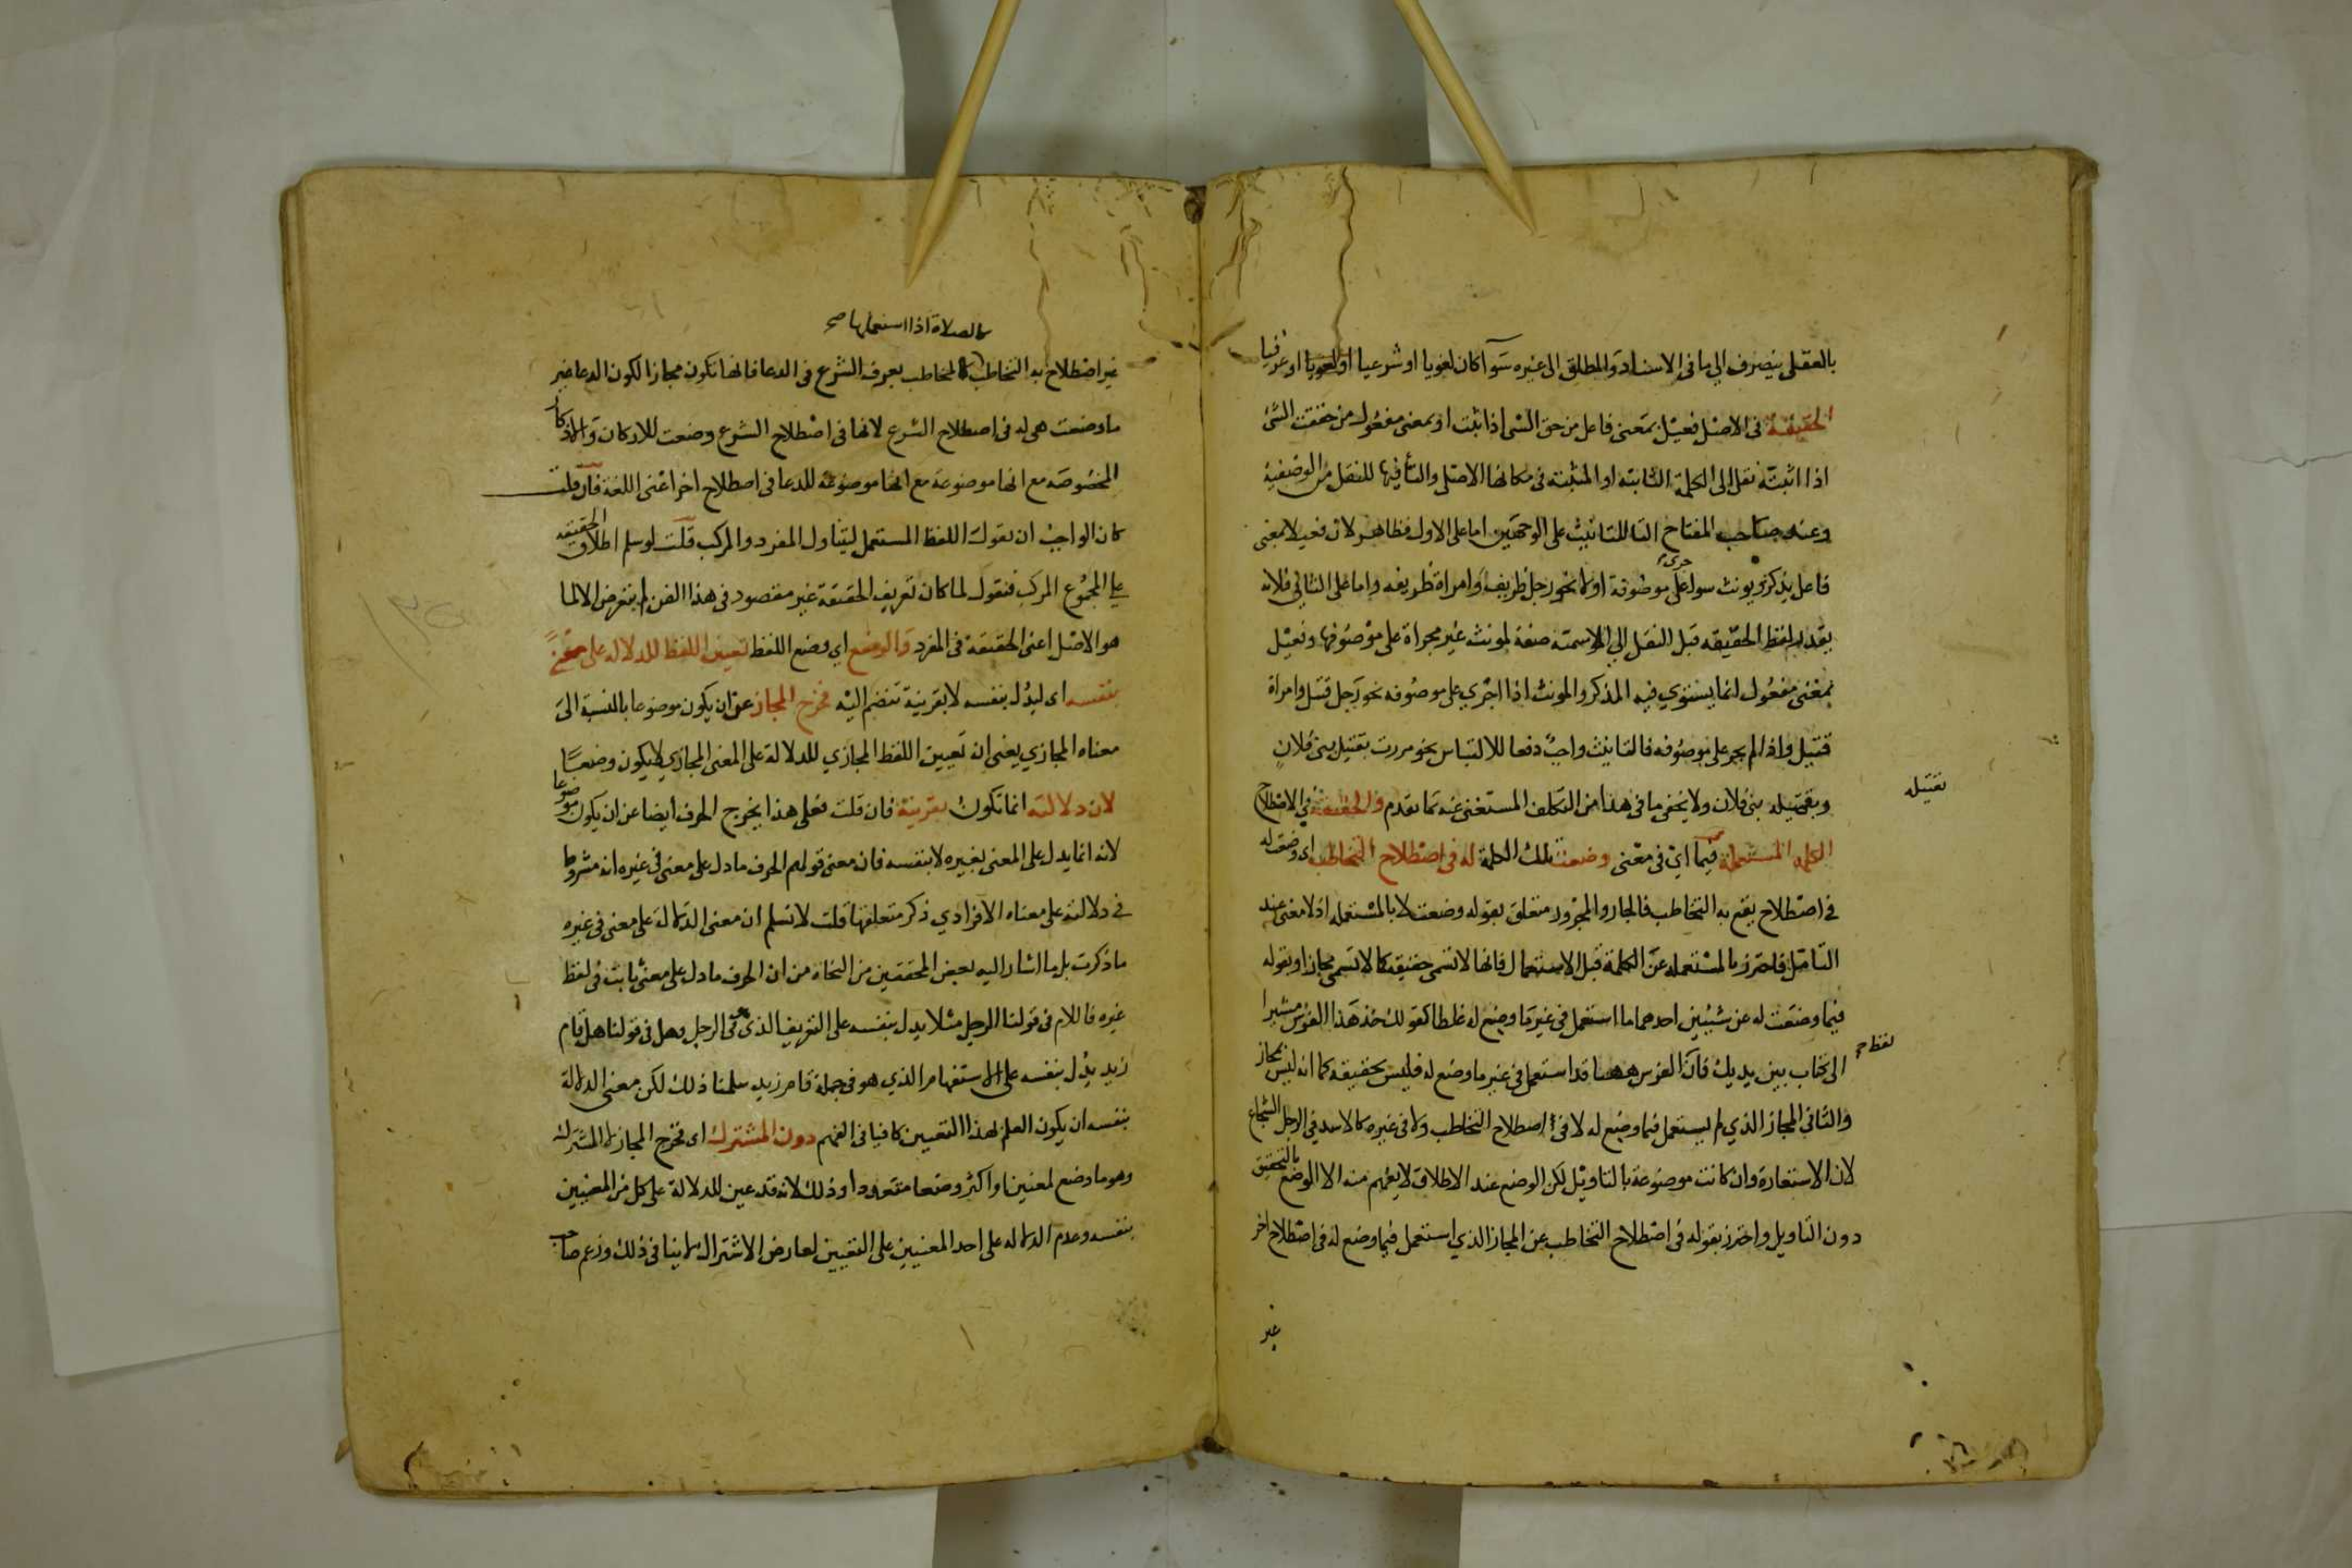 بالعقلى ينصرف الى ما فى الاسناد والمطلق الى غيره سوآ كان لغويا او شرعيا او لغويا او عرفيا
الحقيقة فى الاصل فعيل بمعنى فاعل من حق الشى اذا ثبت او بمعنى مفعول من حققت الشى
اذا اثبته نقل الى الكلمة الثابتة او المثبتة فى مكانها الاصلى والتا فيها للنقل من الوصفية
وعند صاحب المفتاح التا للتانيث على الوجهين اما على الاول فظاهر لان فعيلا بمعنى
فاعل يذكر ويونث سوا جرى على موصوفة او لا نحو رجل ظريف وامراة ظريفه واما على الثانى فلانه
يقدر لفظ الحقيقه قبل النقل الى الاسمية صفة لمونث غير مجراة على موصوفها وفعيل
بمعنى مفعول انما يستوي فيه المذكر والمونث اذا اجري على موصوفه نحو رجل قتيل وامراة
قتيل واذا لم يجر على موصوفه فالتانيث واجب دفعا للالتباس نحو مررت بقتيل بنى فلان
وبقتيله بنى فلان ولا يخفى ما فى هذا من التكلف المستغنى عنه بما تقدم والحقيقة فى الاصطلاح
تقتيله
الكلمه المستعملة فيما اى فى معنى وضعت تلك الكلمة له فى اصطلاح التخاطب اى وضعت له
فى اصطلاح يقع به التخاطب فالجار والمجرور متعلق بقوله وضعت لا بالمستعمله اذ لا معنى عند
التامل فاحترز بالمستعمله عن الكلمة قبل الاستعمال فانها لا تسمى حقيقه كما لا تسمى مجازا وبقوله
فيما وضعت له عن شيئين احدهما ما استعمل فى غير ما وضع له غلطا كقولك خذ هذا الفرس مشيرا
الى كتاب بين يديك فان لفظ الفرس ههنا قد استعمل فى غير ما وضع له فليس بحقيقه كما انه ليس بمجاز
والثانى المجاز الذي لم يستعمل فيما وضع له لا فى اصطلاح التخاطب ولا فى غيره كالاسد فى الرجل الشجاع
لان الاستعارة وان كانت موضوعة بالتاويل لكن الوضع عند الاطلاق لا يفهم منه الا الوضع بالتحقيق
دون التاويل واحترز بقوله فى اصطلاح التخاطب عن المجاز الذي استعمل فيما وضع له فى اصطلاح اخر
غير
كالصلاة اذا استعملها صح
غير اصطلاح به التخاطب المخاطب بعرف الشرع فى الدعا فانها تكون مجازا لكون الدعا غير
ما وضعت هى له فى اصطلاح الشرع لانها فى اصطلاح الشرع وضعت للاركان والاذكار
المخصوصه مع انها موضوعة مع انها موضوعة للدعا فى اصطلاح اخر اعنى اللغة فان قلت
كان الواجب ان يقول اللفظ المستعمل ليتناول المفرد والمركب قلت لو سلم اطلاق الحقيقه
على المجموع المركب فنقول لما كان تعريف الحقيقة غير مقصود فى هذا الفن لم يتعرض الا لما
هو الاصل اعنى الحقيقة فى المفرد والوضع اى وضع اللفظ تعيين اللفظ للدلاله على معنى
بنفسه اى ليدل بنفسه لا بقرينة تنضم اليه فخرج المجاز عن ان يكون موضوعا بالنسبة الى
معناه المجازي يعنى ان تعيين اللفظ المجازي للدلالة على المعنى المجازي لا يكون وضعيا
لان دلالته انما تكون بقرينة فان قلت فعلى هذا يخرج الحرف ايضا عن ان يكون موضوعا
لانه انما يدل على المعنى بغيره لا بنفسه فان معنى قولهم الحرف ما دل على معنى فى غيره انه مشروط
فى دلالته على معناه الافرادي ذكر متعلقها قلت لا نسلم ان معنى الدلالة على معنى فى غيره
ما ذكرت بل ما اشار اليه بعض المحققين من النحاة من ان الحرف ما دل على معنى ثابت فى لفظ
غيره فاللام فى قولنا الرجل مثلا يدل بنفسه على التعريف الذى هو فى الرجل وهل فى قولنا هل قام
زيد يدل بنفسه على الاستفهام الذي هو فى جملة قام زيد سلمنا ذلك لكن معنى الدلالة
بنفسه ان يكون العلم بهذا التعيين كافيا فى الفهم دون المشترك اى فخرج المجاز لا المشترك
وهو ما وضع لمعنيين او اكثر وضعا متعددا وذلك لانه قد عين للدلالة على كل من المعنيين
بنفسه وعدم الدلاله على احد المعنيين على التعيين لعارض الاشتراك لا ينافى ذلك وزعم صاحب